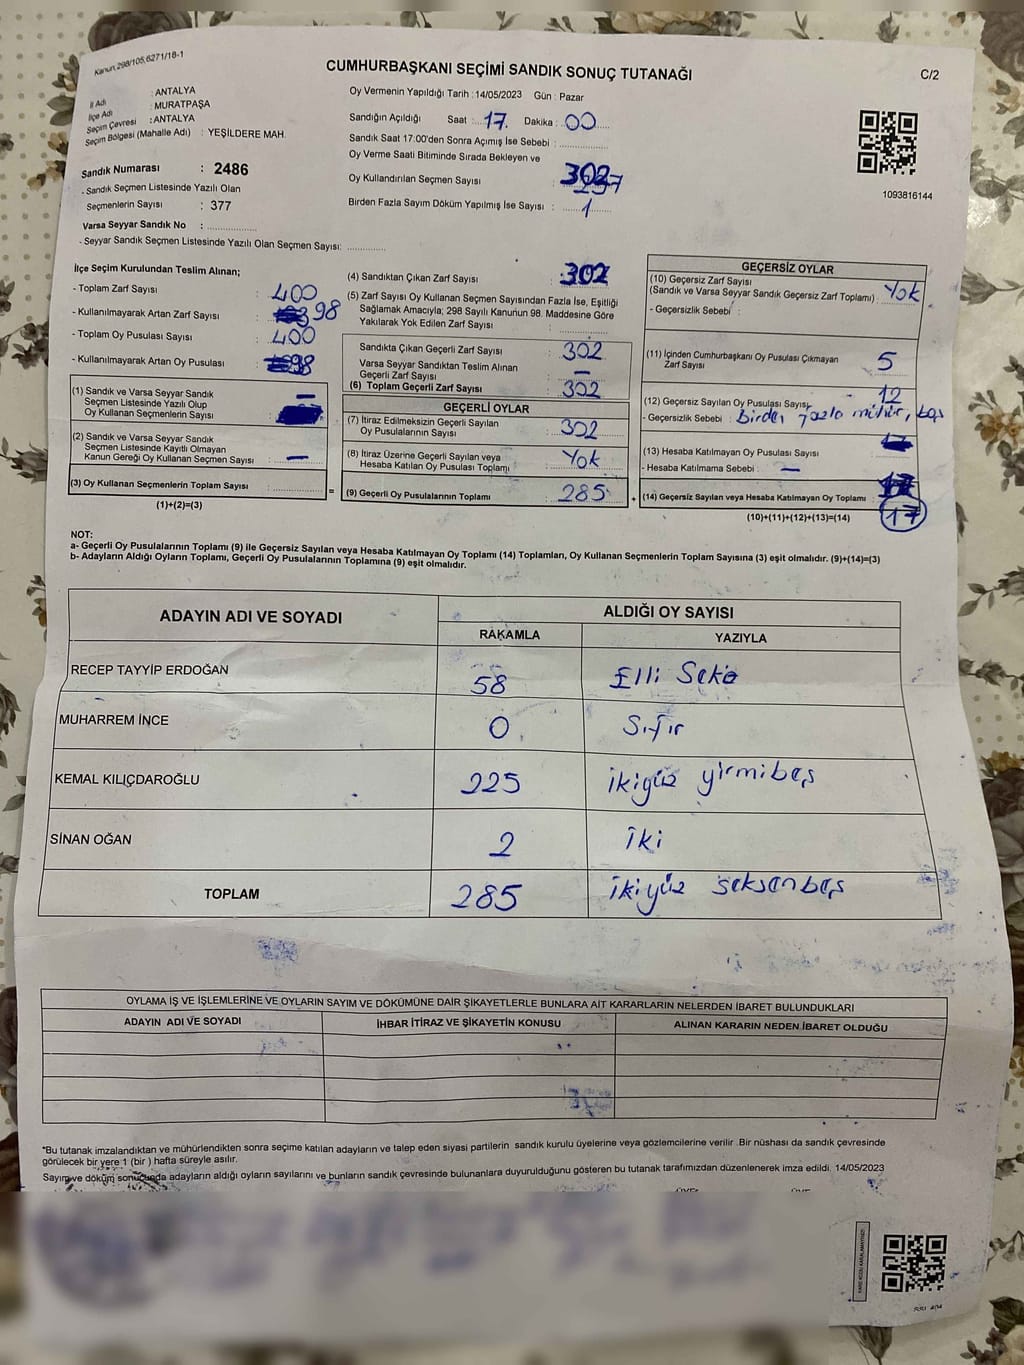 Kanun,298/105,6271/18-1
CUMHURBAŞKANI SEÇİMİ SANDIK SONUÇ TUTANAĞI
C/2
İl Adı : ANTALYA
İlçe Adı : MURATPAŞA
Seçim Çevresi : ANTALYA
Seçim Bölgesi (Mahalle Adı) : YEŞİLDERE MAH.
Sandık Numarası : 2486
- Sandık Seçmen Listesinde Yazılı Olan
Seçmenlerin Sayısı : 377
Varsa Seyyar Sandık No :
- Seyyar Sandık Seçmen Listesinde Yazılı Olan Seçmen Sayısı:
Oy Vermenin Yapıldığı Tarih : 14/05/2023 Gün : Pazar
Sandığın Açıldığı Saat : 17. Dakika : 00
Sandık Saat 17:00'den Sonra Açımış İse Sebebi :
Oy Verme Saati Bitiminde Sırada Bekleyen ve
Oy Kullandırılan Seçmen Sayısı : 302
Birden Fazla Sayım Döküm Yapılmış İse Sayısı : 1
1093816144
İlçe Seçim Kurulundan Teslim Alınan;
- Toplam Zarf Sayısı : 400
- Kullanılmayarak Artan Zarf Sayısı : 98
- Toplam Oy Pusulası Sayısı : 400
- Kullanılmayarak Artan Oy Pusulası : 98
(1) Sandık ve Varsa Seyyar Sandık
Seçmen Listesinde Yazılı Olup
Oy Kullanan Seçmenlerin Sayısı :
(2) Sandık ve Varsa Seyyar Sandık
Seçmen Listesinde Kayıtlı Olmayan
Kanun Gereği Oy Kullanan Seçmen Sayısı : –
(3) Oy Kullanan Seçmenlerin Toplam Sayısı :
(1)+(2)=(3)
=
(4) Sandıktan Çıkan Zarf Sayısı : 302
(5) Zarf Sayısı Oy Kullanan Seçmen Sayısından Fazla İse, Eşitliği
Sağlamak Amacıyla; 298 Sayılı Kanunun 98. Maddesine Göre
Yakılarak Yok Edilen Zarf Sayısı :
Sandıkta Çıkan Geçerli Zarf Sayısı : 302
Varsa Seyyar Sandıktan Teslim Alınan
Geçerli Zarf Sayısı : –
(6) Toplam Geçerli Zarf Sayısı : 302
GEÇERLİ OYLAR
(7) İtiraz Edilmeksizin Geçerli Sayılan
Oy Pusulalarının Sayısı : 302
(8) İtiraz Üzerine Geçerli Sayılan veya
Hesaba Katılan Oy Pusulası Toplamı : Yok
(9) Geçerli Oy Pusulalarının Toplamı : 285
+
GEÇERSİZ OYLAR
(10) Geçersiz Zarf Sayısı
(Sandık ve Varsa Seyyar Sandık Geçersiz Zarf Toplamı) : Yok
- Geçersizlik Sebebi :
(11) İçinden Cumhurbaşkanı Oy Pusulası Çıkmayan
Zarf Sayısı : 5
(12) Geçersiz Sayılan Oy Pusulası Sayısı 12
- Geçersizlik Sebebi : Birden fazla mühür,
(13) Hesaba Katılmayan Oy Pusulası Sayısı :
- Hesaba Katılmama Sebebi : –
(14) Geçersiz Sayılan veya Hesaba Katılmayan Oy Toplamı : 17
(10)+(11)+(12)+(13)=(14) 17
NOT:
a- Geçerli Oy Pusulalarının Toplamı (9) ile Geçersiz Sayılan veya Hesaba Katılmayan Oy Toplamı (14) Toplamları, Oy Kullanan Seçmenlerin Toplam Sayısına (3) eşit olmalıdır. (9)+(14)=(3)
b- Adayların Aldığı Oyların Toplamı, Geçerli Oy Pusulalarının Toplamına (9) eşit olmalıdır.
ADAYIN ADI VE SOYADI
ALDIĞI OY SAYISI
RAKAMLA
YAZIYLA
RECEP TAYYİP ERDOĞAN 58 Elli Sekiz
MUHARREM İNCE 0 Sıfır
KEMAL KILIÇDAROĞLU 225 ikiyüz yirmibeş
SİNAN OĞAN 2 iki
TOPLAM 285 ikiyüz seksenbeş
OYLAMA İŞ VE İŞLEMLERİNE VE OYLARIN SAYIM VE DÖKÜMÜNE DAİR ŞİKAYETLERLE BUNLARA AİT KARARLARIN NELERDEN İBARET BULUNDUKLARI
ADAYIN ADI VE SOYADI
İHBAR İTİRAZ VE ŞİKAYETİN KONUSU
ALINAN KARARIN NEDEN İBARET OLDUĞU
*Bu tutanak imzalandıktan ve mühürlendikten sonra seçime katılan adayların ve talep eden siyasi partilerin sandık kurulu üyelerine veya gözlemcilerine verilir .Bir nüshası da sandık çevresinde
görülecek bir yere 1 (bir ) hafta süreyle asılır.
Sayım ve döküm sonucunda adayların aldığı oyların sayılarını ve bunların sandık çevresinde bulunanlara duyurulduğunu gösteren bu tutanak tarafımızdan düzenlenerek imza edildi. 14/05/2023